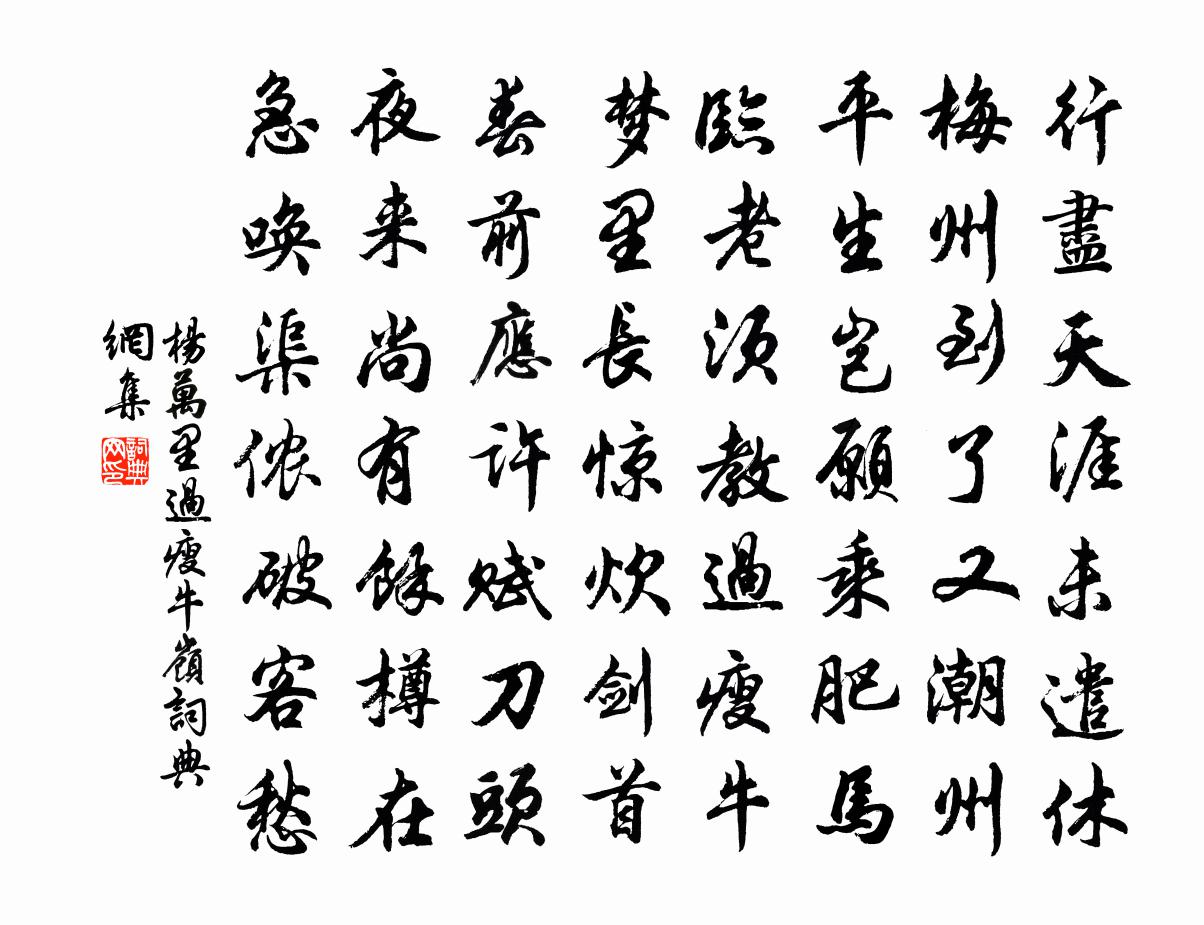 行盡天涯未遣休
梅州到了又潮州
平生岂願乘肥馬
臨老须教過瘦牛
梦里長惊炊剑首
春前應许赋刀頭
夜来尚有餘樽在
急唤渠侬破客愁
楊萬里過瘦牛嶺詞典
網集
詞典
网印